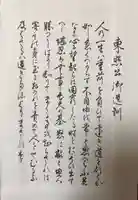 東照公御遺訓
人の一生は重荷を負て遠き道をゆくが
如し急ぐべからず不自由を常と思へば不足
なし心に望おこらば困窮したる時を思ひ出す
べし堪忍は無事長久の基怒は敵と思へ
勝つ事ばかり知りて負くる事を知らざれば
害其の身に至る己を責めて人を責めるな
及ばざるは過ぎたるより